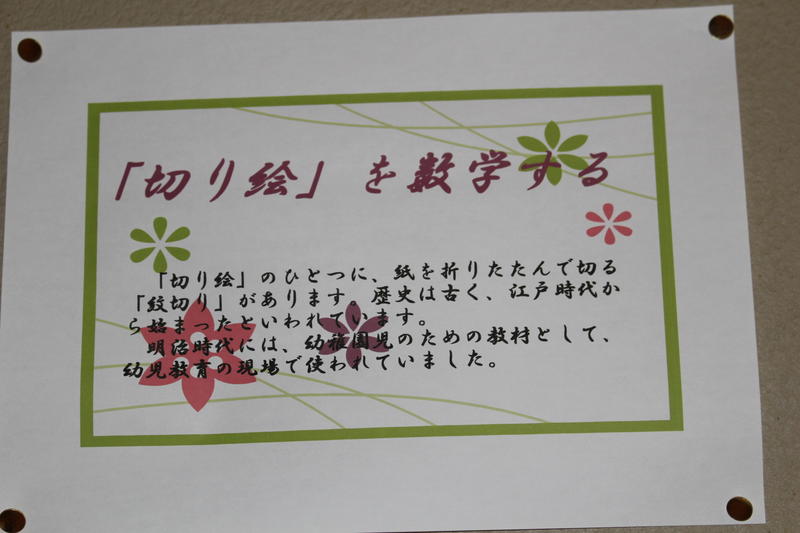 「切り絵」を数学する
「切り絵」のひとつに、紙を折りたたんで切る
「紋切り」があります。歴史は古く、江戸時代か
ら始まったといわれています。
明治時代には、幼稚園児のための教材として、
幼児教育の現場で使われていました。